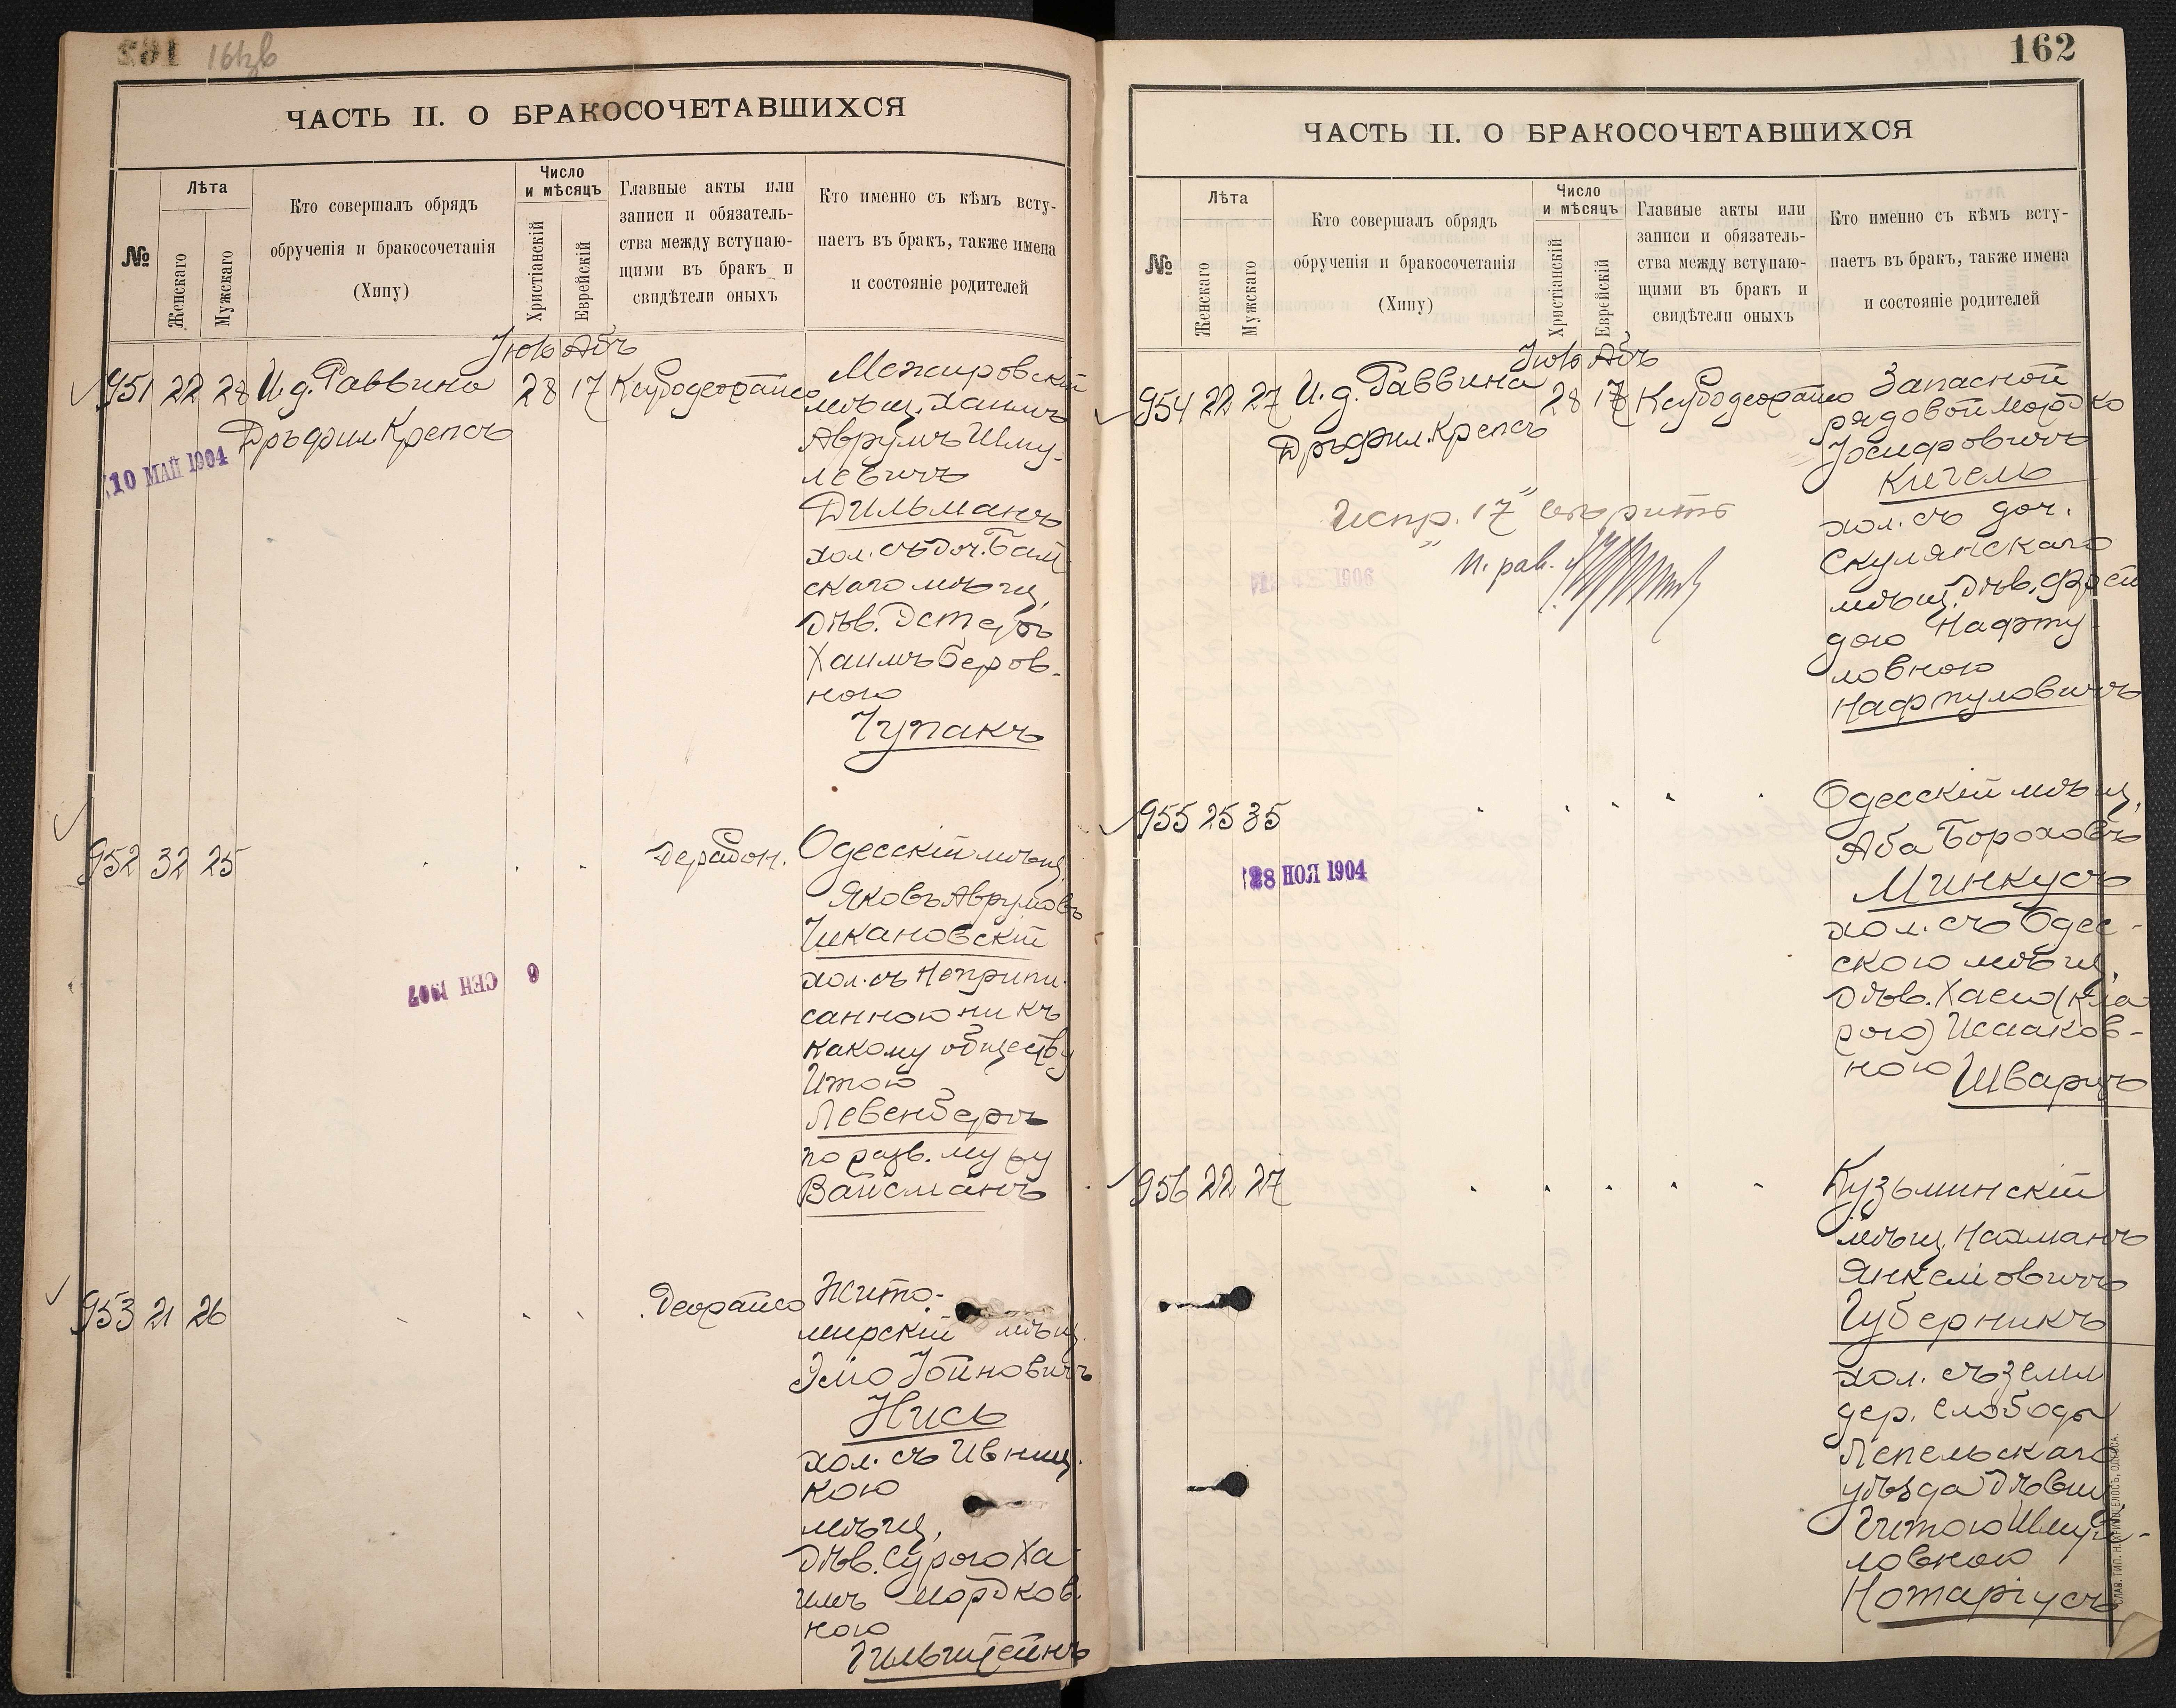 161об
ЧАСТЬ II. О БРАКОСОЧЕТАВШИХСЯ
№
Лѣта
Женскаго
Мужскаго
Кто совершалъ обрядъ
обрученія и бракосочетанія
(Хипу)
Число
и мѣсяцъ
Христіанскій
Еврейскій
Главные акты или
записи и обязатель-
ства между вступаю-
щими въ бракъ и
свидѣтели оныхъ
Кто именно съ кѣмъ всту-
паетъ въ бракъ, также имена
и состояніе родителей
Іюль Абъ
951 22 28 И. д. Раввина 28 17
Дръ фил. Крепсъ
10 МАЙ 1904
мѣщ. Хаимъ
Аврумъ Шму-
левичъ
Дильманъ
хол. съ доч.
скаго мѣщ,
дѣв. Эстеръ
Хаимъ Беров-
ною
Чупакъ
952 32 25
Одесскій мѣщ.
Яковъ Аврумовъ
Чикановскій
хол. съ неприпи-
санною ни къ
какому обществу
Итою
Левенбергъ
по разв. мужу
Вайсманъ
6 СЕН 1907
953 21 26
Жито-
мирскій мѣщ.
Эліо Іойновичъ
Нись
хол. съ Ивниц-
кою
мѣщ,
дѣв. Сурою Ха-
имъ Мордков-
ною
Гильштейнъ
162
ЧАСТЬ II. О БРАКОСОЧЕТАВШИХСЯ
№
Лѣта
Женскаго
Мужскаго
Кто совершалъ обрядъ
обрученія и бракосочетанія
(Хипу)
Число
и мѣсяцъ
Христіанскій
Еврейскій
Главные акты или
записи и обязатель-
ства между вступаю-
щими въ бракъ и
свидѣтели оныхъ
Кто именно съ кѣмъ всту-
паетъ въ бракъ, также имена
и состояніе родителей
Іюль Абъ
954 22 27 И. д. Раввина 28 17
Дръ фил. Крепсъ
Испр. "17" вѣрить
и. рав.
1906
Запасной
рядовой Мордко
Іосифовичъ
Кигель
хол. съ доч.
Скулянскаго
мѣщ. дѣв. Фрей-
дою Нафту-
ловною
Нафтуловичъ
955 25 35
28 НОЯ 1904
Одесскій мѣщ,
Аба Бороховъ
Минкусъ
хол. съ Одес-
скою мѣщ,
дѣв. Хаею (Кла-
рою) Исааков-
ною Шварцъ
956 22 27
Кузьминскій
мѣщ. Нахманъ
Янкелиовичъ
Губерникъ
хол. съ земл
дер. Слободы
Лепельскаго
уѣзда дѣвиц
Гитою Шмуй-
ловною
Нотаріусъ